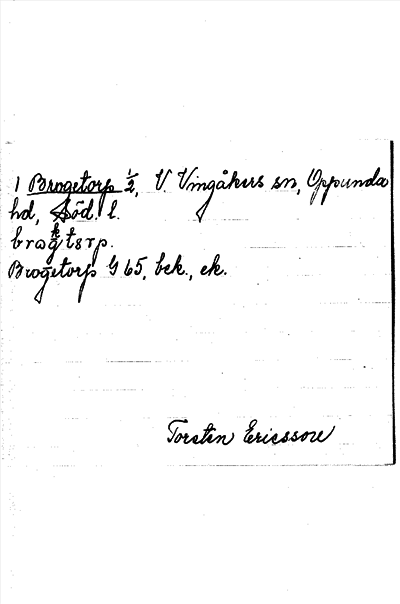 1 Brogetorp 1/2, V. Vingåkers sn, Oppunda
hd, Söd. l.
Brogetorp G 65, bek., ek.
Torsten Ericsson